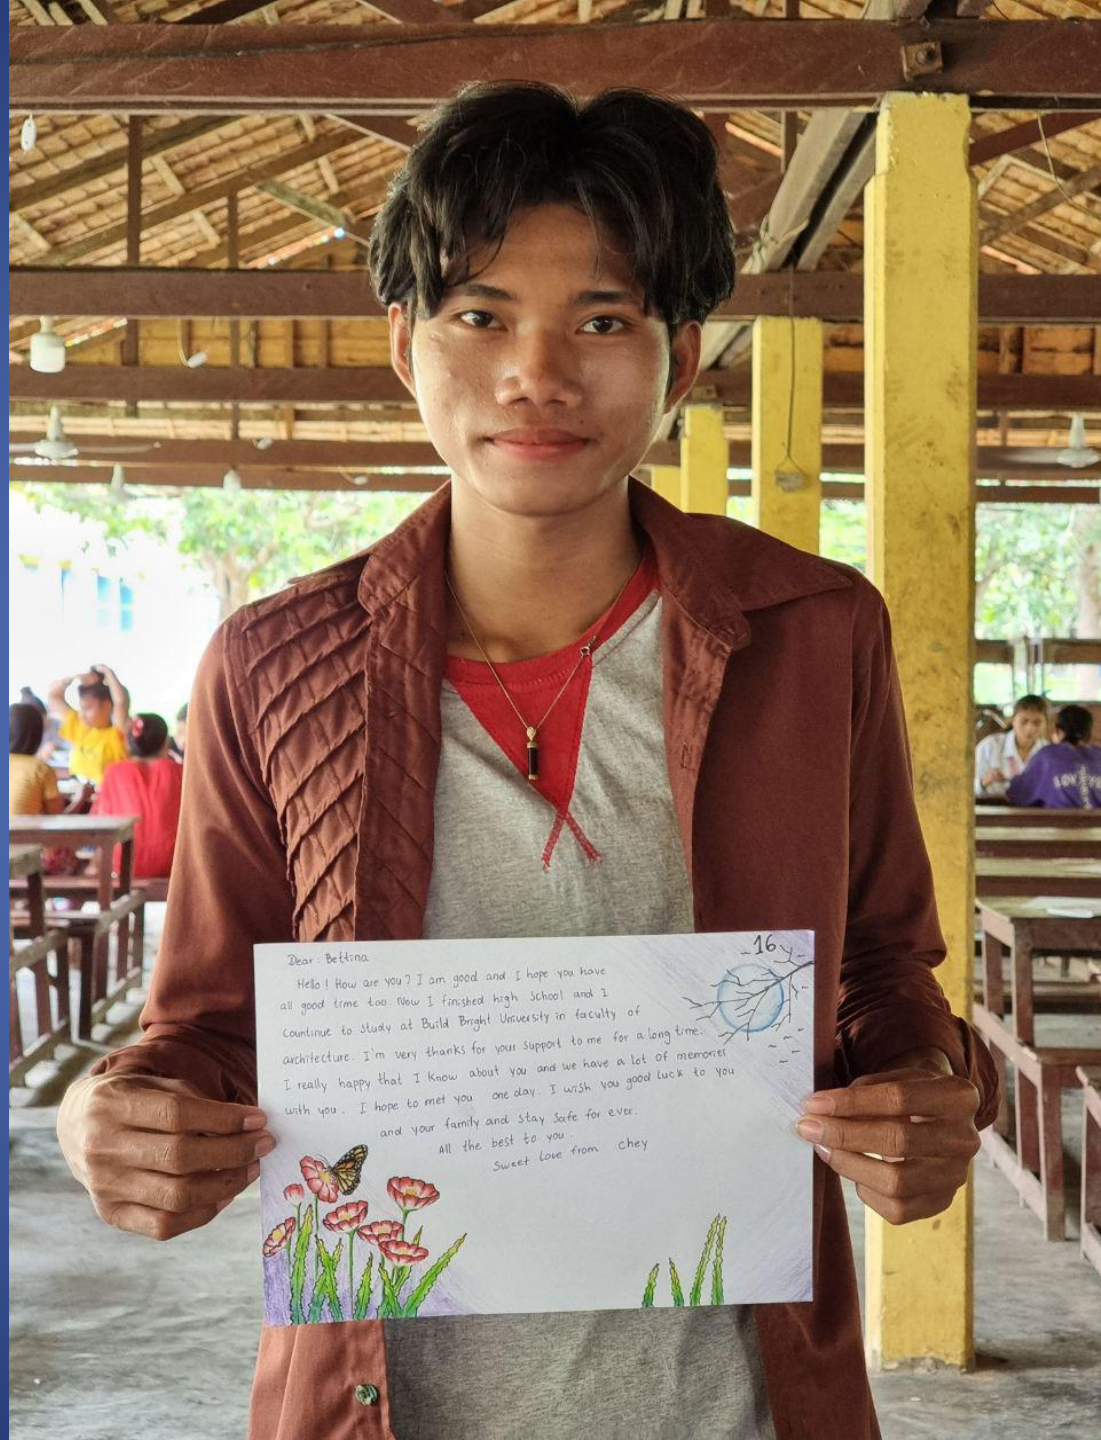 16
Dear : Bettina
Hello ! How are you ? I am good and I hope you have
all good time too. Now I finished high School and I
countinue to study at Build Bright University in faculty of
architecture. I'm very thanks for your support to me for a long time.
I really happy that I know about you and we have a lot of memories
with you. I hope to met you one day. I wish you good luck to you
and your family and stay safe for ever.
All the best to you.
Sweet love from chey
LOVE YO